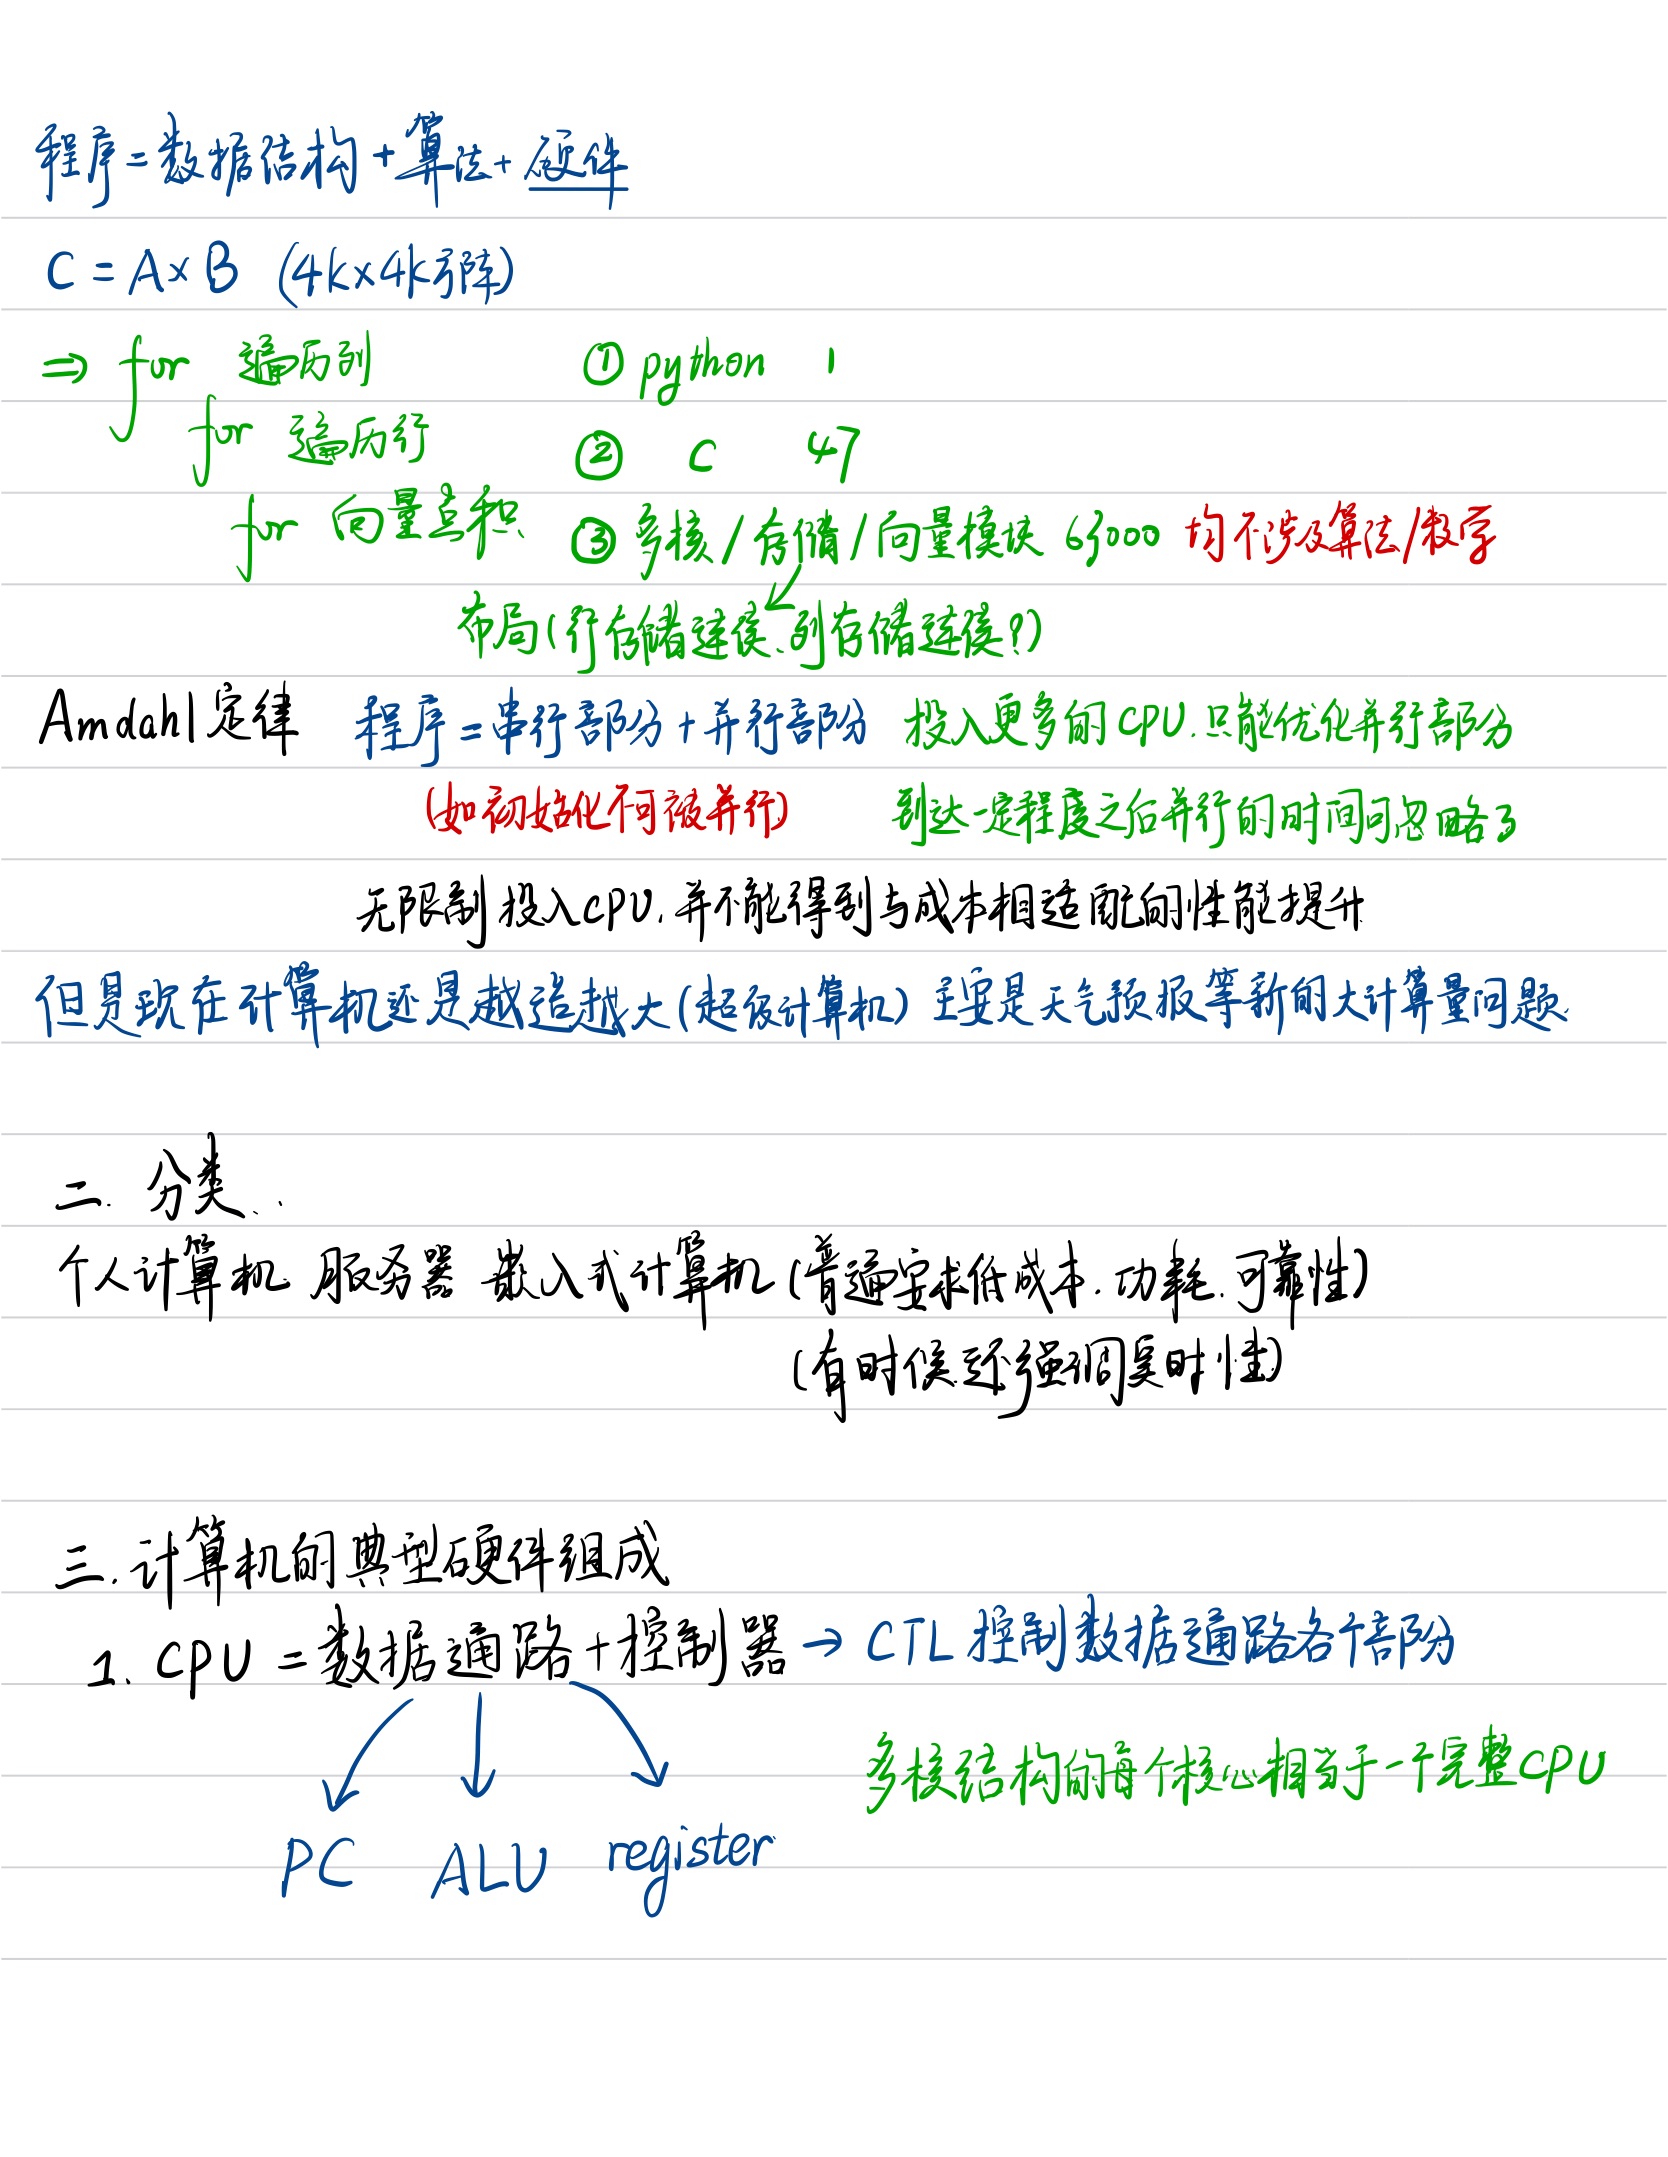 程序=数据结构+算法+硬件
C=A×B (4k×4k矩阵)
⇒ for 遍历列 ① python 1
for 遍历行 ② C 47
for 向量点积 ③ 多核/存储/向量模块 63000 均不涉及算法/数学
布局(行存储连续、列存储连续?)
Amdahl定律 程序=串行部分+并行部分 投入更多的CPU.只能优化并行部分
(如初始化不可被并行) 到达一定程度之后并行的时间可忽略了
无限制投入CPU.并不能得到与成本相适配的性能提升
但是现在计算机还是越造越大(超级计算机) 主要是天气预报等新的大计算量问题.
二. 分类
个人计算机 服务器 嵌入式计算机(普遍要求低成本.功耗.可靠性)
(有时候还强调实时性)
三.计算机的典型硬件组成
1. CPU=数据通路+控制器→CTL控制数据通路各个部分
多核结构的每个核心相当于一个完整CPU
PC ALU register